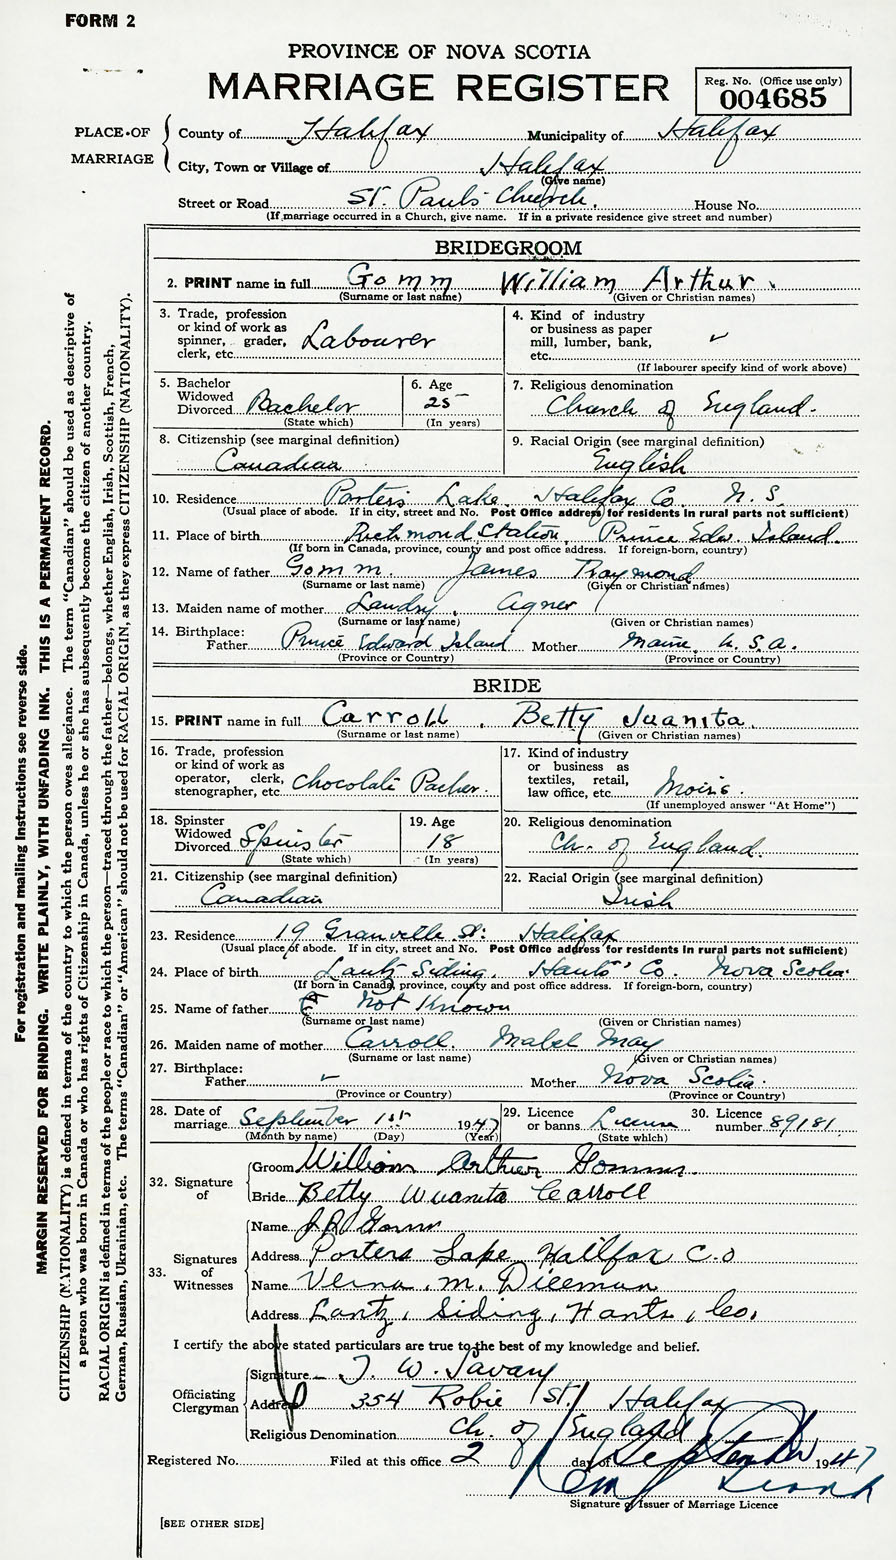 FORM 2
PROVINCE OF NOVA SCOTIA
MARRIAGE REGISTER
Reg. No. (Office use only)
004685
PLACE OF MARRIAGE
County of Halifax Municipality of Halifax
City, Town or Village of Halifax
(Give name)
Street or Road St. Paul's Church. House No.
(If marriage occurred in a Church, give name. If in a private residence give street and number)
BRIDEGROOM
2. PRINT name in full Gomm William Arthur.
(Surname or last name) (Given or Christian names)
3. Trade, profession or kind of work as spinner, grader, clerk, etc. Labourer
4. Kind of industry or business as paper mill, lumber, bank, etc.
(If labourer specify kind of work above)
5. Bachelor Widowed Divorced Bachelor
(State which)
6. Age 25
(In years)
7. Religious denomination
Church of England.
8. Citizenship (see marginal definition)
Canadian
9. Racial Origin (see marginal definition)
English
10. Residence Porters Lake Halifax Co. N. S.
(Usual place of abode. If in city, street and No. Post Office address for residents in rural parts not sufficient)
11. Place of birth Richmond Station, Prince Edw. Island.
(If born in Canada, province, county and post office address. If foreign-born, country)
12. Name of father Gomm. James Raymond
(Surname or last name) (Given or Christian names)
13. Maiden name of mother Landry, Agner
(Surname or last name) (Given or Christian names)
14. Birthplace: Father Prince Edward Island Mother Maine, U. S. A.
(Province or Country) (Province or Country)
BRIDE
15. PRINT name in full Carroll, Betty Juanita
(Surname or last name) (Given or Christian names)
16. Trade, profession or kind of work as operator, clerk, stenographer, etc. Chocolate Packer.
17. Kind of industry or business as textiles, retail, law office, etc. Moirs.
(If unemployed answer "At Home")
18. Spinster Widowed Divorced Spinster
(State which)
19. Age 18
(In years)
20. Religious denomination
Ch. of England.
21. Citizenship (see marginal definition)
Canadian
22. Racial Origin (see marginal definition)
Irish
23. Residence 19 Granville St: Halifax
(Usual place of abode. If in city, street and No. Post Office address for residents in rural parts not sufficient)
24. Place of birth Lantz Siding, Hants' Co. Nova Scotia.
(If born in Canada, province, county and post office address. If foreign-born, country)
25. Name of father Not Known
(Surname or last name) (Given or Christian names)
26. Maiden name of mother Carroll. Mabel May
(Surname or last name) (Given or Christian names)
27. Birthplace: Father Mother Nova Scotia.
(Province or Country) (Province or Country)
28. Date of marriage September 1st 1947
(Month by name) (Day) (Year)
29. Licence or banns License
(State which)
30. Licence number 89181
32. Signature of
Groom William Arthur Gomm.
Bride Betty Wuanita Carroll
33. Signatures of Witnesses
Name J R Gomm
Address Porters Lake Hallfax C.O
Name Verna. M. Dieeman
Address Lantz, Siding, Hants, Co,
I certify the above stated particulars are true to the best of my knowledge and belief.
Officiating Clergyman
Signature T. W. Savary
Address 354 Robie St. Halifax
Religious Denomination Ch. of England
Registered No. Filed at this office 2 day of September 1947
Signature of Issuer of Marriage Licence
[SEE OTHER SIDE]
For registration and mailing instructions see reverse side.
MARGIN RESERVED FOR BINDING. WRITE PLAINLY, WITH UNFADING INK. THIS IS A PERMANENT RECORD.
CITIZENSHIP (NATIONALITY) is defined in terms of the country to which the person owes allegiance. The term "Canadian" should be used as descriptive of
a person who was born in Canada or who has rights of Citizenship in Canada, unless he or she has subsequently become the citizen of another country.
RACIAL ORIGIN is defined in terms of the people or race to which the person—traced through the father—belongs, whether English, Irish, Scottish, French,
German, Russian, Ukrainian, etc. The terms "Canadian" or "American" should not be used for RACIAL ORIGIN, as they express CITIZENSHIP (NATIONALITY).